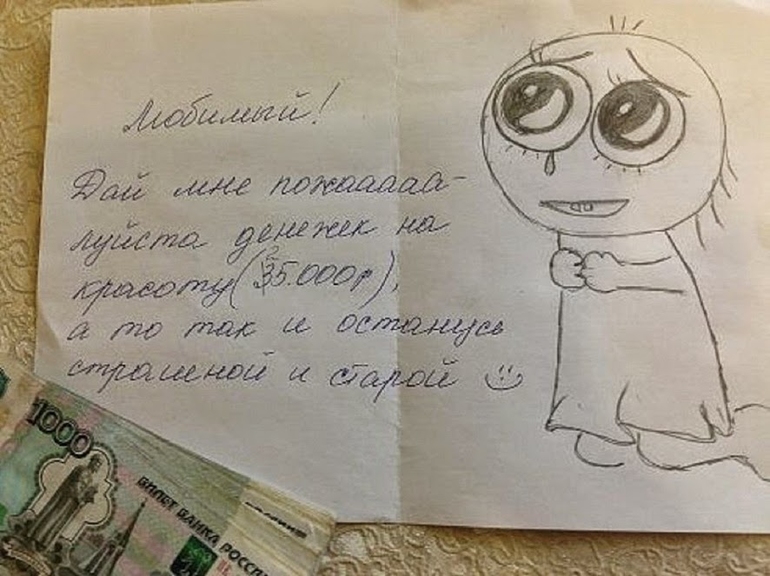 Любимый!
Дай мне пожааааа-
луйста денежек на
красоту (35.000р),
а то так и останусь
страшной и старой
1000
БИЛЕТ БАНКА РОССИИ